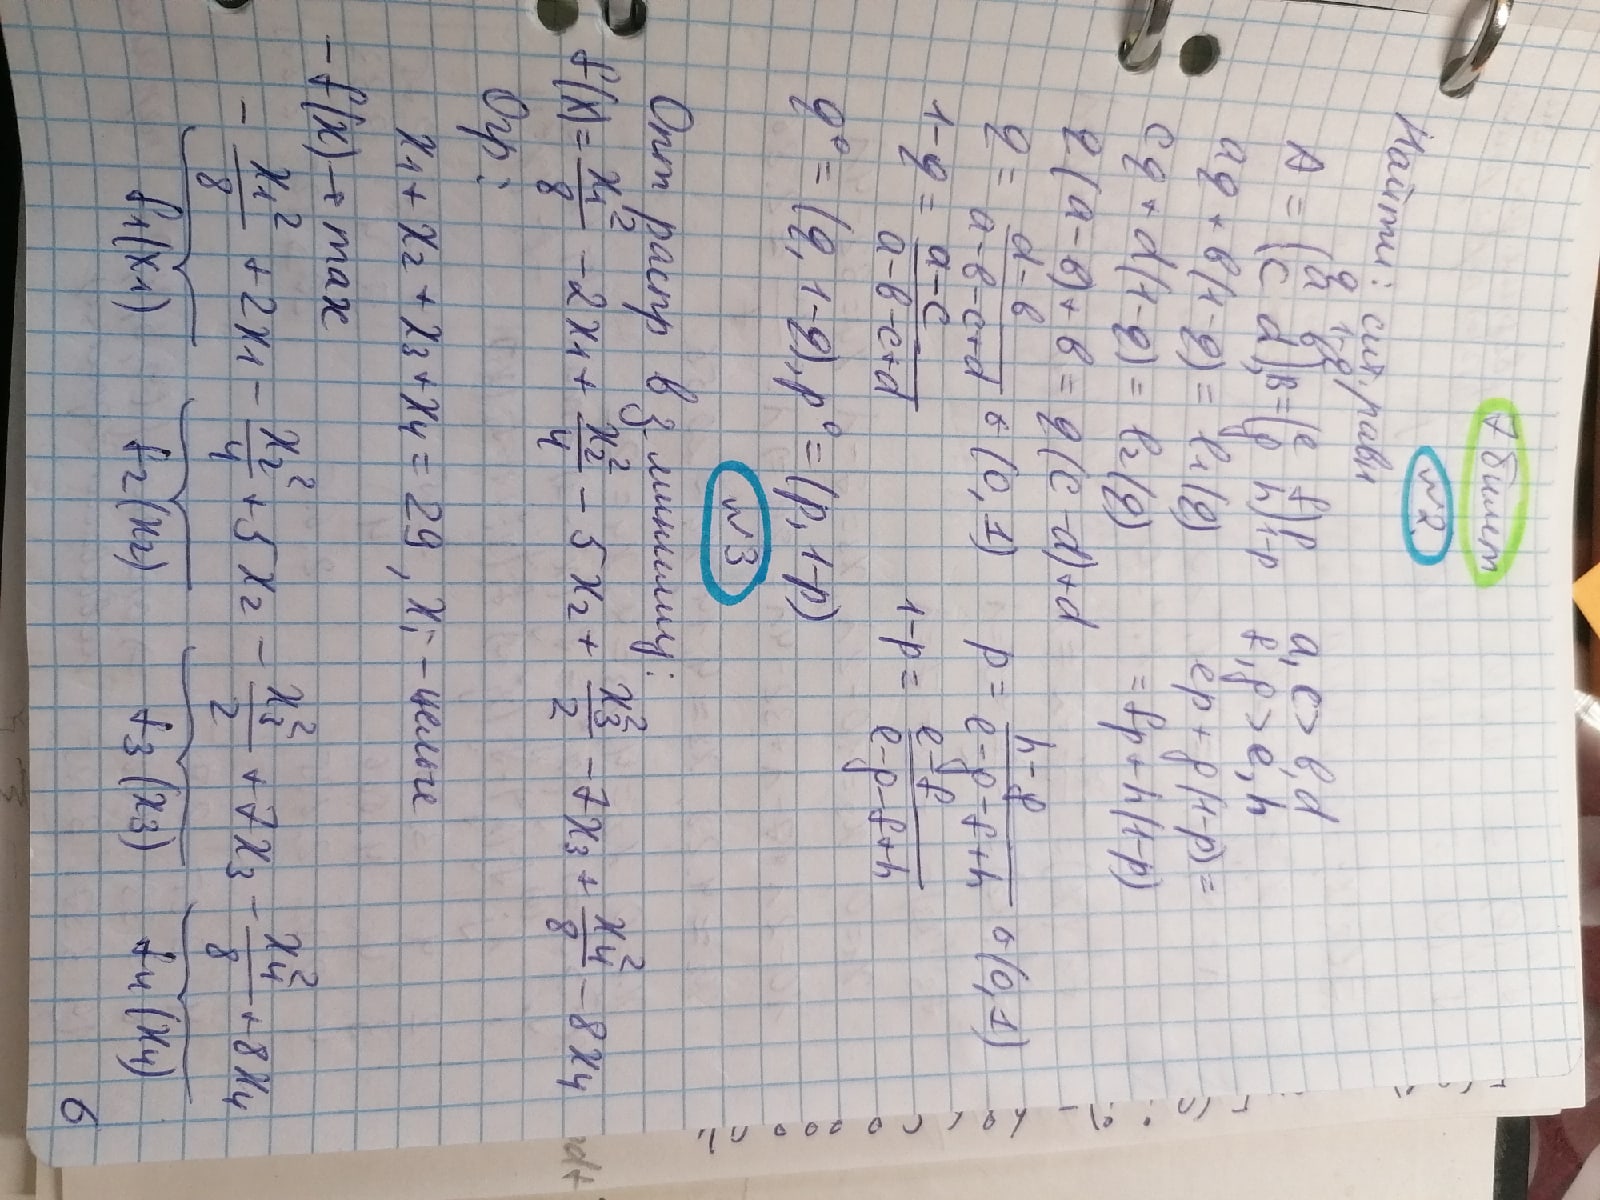 7 билет
№2
Найти: сит. равн
q 1-q
A = (a b
c d), B = (e f
g h) p
1-p
a, c > b, d
f, g > e, h
aq + b(1-q) = h1(q)
ep + g(1-p) =
cq + d(1-q) = h2(q)
= fp + h(1-p)
q(a-b) + b = q(c-d) + d
q = (d-b)/(a-b-c+d) ∈ (0, 1)
p = (h-g)/(e-g-f+h) ∈ (0, 1)
1-q = (a-c)/(a-b-c+d)
1-p = (e-f)/(e-g-f+h)
q⁰ = (q, 1-q), p⁰ = (p, 1-p)
№3
Опт распр в з. минимиз:
f(x) = x1²/8 - 2x1 + x2²/4 - 5x2 + x3²/2 - 7x3 + x4²/8 - 8x4
Огр:
x1 + x2 + x3 + x4 = 29, xi - целые
-f(x) → max
- x1²/8 + 2x1 - x2²/4 + 5x2 - x3²/2 + 7x3 - x4²/8 + 8x4
f1(x1) f2(x2) f3(x3) f4(x4)
6